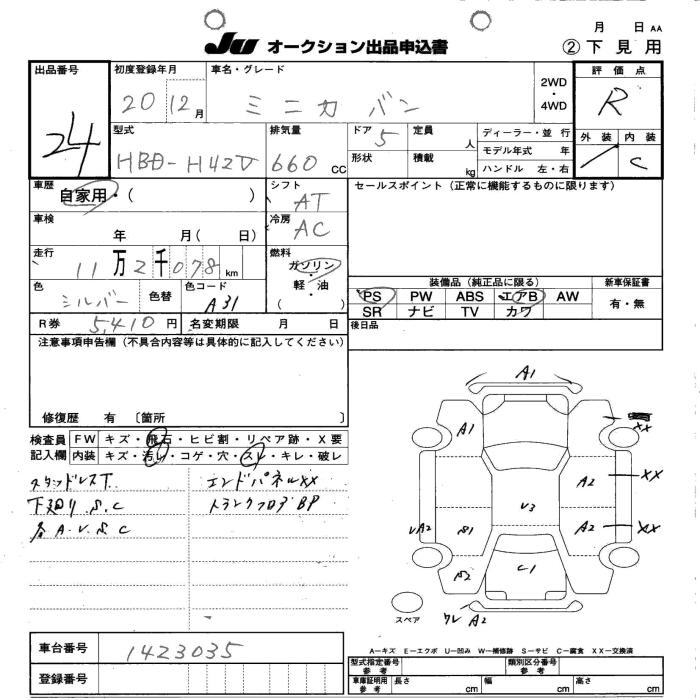 月 日 AA
JU オークション出品申込書 ② 下見用
出品番号 初度登録年月 車名・グレード 2WD ・ 4WD 評価点
24 20 12月 ミニカバン R
型式 排気量 ドア 定員 ディーラー・並行 外装 内装
HBD-H42V 660 CC 5 人 モデル年式 年 / C
形状 積載 kg ハンドル 左・右
車歴 自家用・( ) シフト AT セールスポイント (正常に機能するものに限ります)
車検 年 月( 日) 冷房 AC
走行 11万2千078km 燃料 ガソリン 軽・油 ( )
装備品 (純正品に限る) 新車保証書
色 シルバー 色替 色コード A31
PS PW ABS エアB AW 有・無
SR ナビ TV カワ
R券 5,410円 名変期限 月 日 後日品
注意事項申告欄 (不具合内容等は具体的に記入してください)
修復歴 有 〔箇所 〕
検査員 FW キズ・飛石・ヒビ割・リペア跡・X要
記入欄 内装 キズ・汚れ・コゲ・穴・スレ・キレ・破レ
スタッドレスT エンドパネルXX
下廻り S.C トランクフロアBP
各A.U.S.C
A1
A1 XX
A2 XX
U3
UA2 S1 A2 XX
S2 C1
スペア ワレ A2
A-キズ E-エクボ U-凹み W-補修跡 S-サビ C-腐食 XX-交換済
車台番号 1423035
登録番号
型式指定番号 参考 類別区分番号 参考
車庫証明用 参考 長さ cm 幅 cm 高さ cm